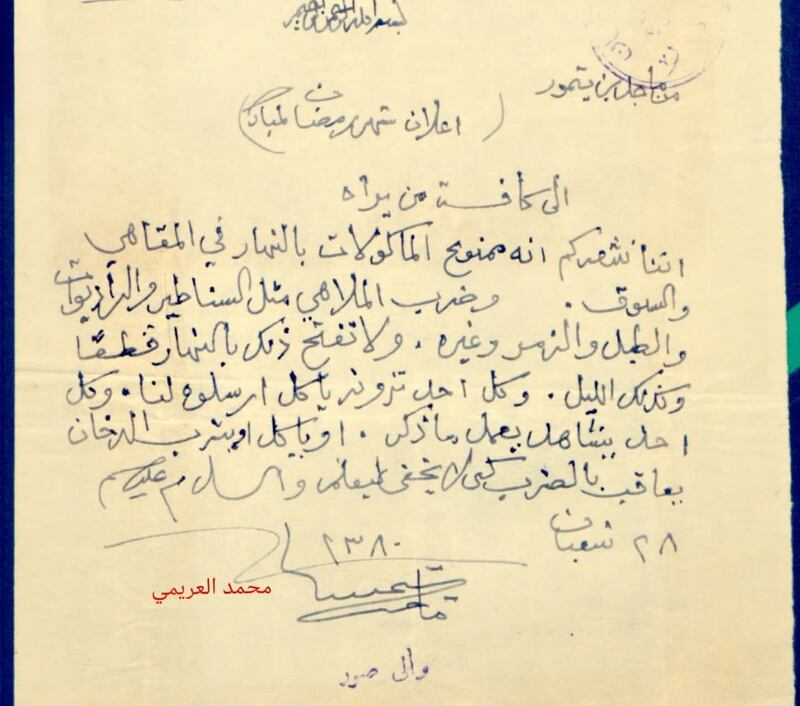 بسم الله الرحمن الرحيم
من ماجد بن تيمور
( اعلان شهر رمضان المبارك )
الى كافـــة من يراه
اننا نشعركم انه ممنوع المأكولات بالنهار في المقاهي
والسوق . وضرب الملاهي مثل السناطير والراديوات
والطبل والزمر وغيره . ولا تفتح ذلك بالنهار قطعًا
وكذلك الليل . وكل احد ترونه يأكل ارسلوه لنا . وكل
احد يشاهد يعمل ماذكر . او يأكل او يشرب الدخان
يعاقب بالضرب لكي لا يخفى ليعلم والسلام عليكم
٢٨ شعبان ١٣٨٠
محمد العريمي
والى صور